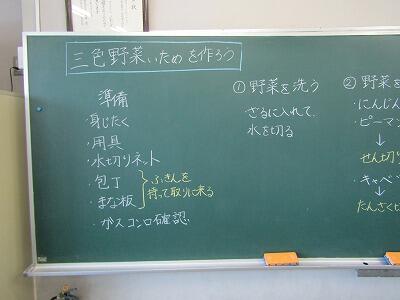 三色野菜いためを作ろう
準備
・身じたく
・用具
・水切りネット
・包丁
・まな板
ふきんを
持って取りに来る
・ガスコンロ確認
①野菜を洗う
ざるに入れて
水を切る
②野菜を
・にんじん
・ピーマン
↓
せん切り
・キャベツ
↓
たんざく切